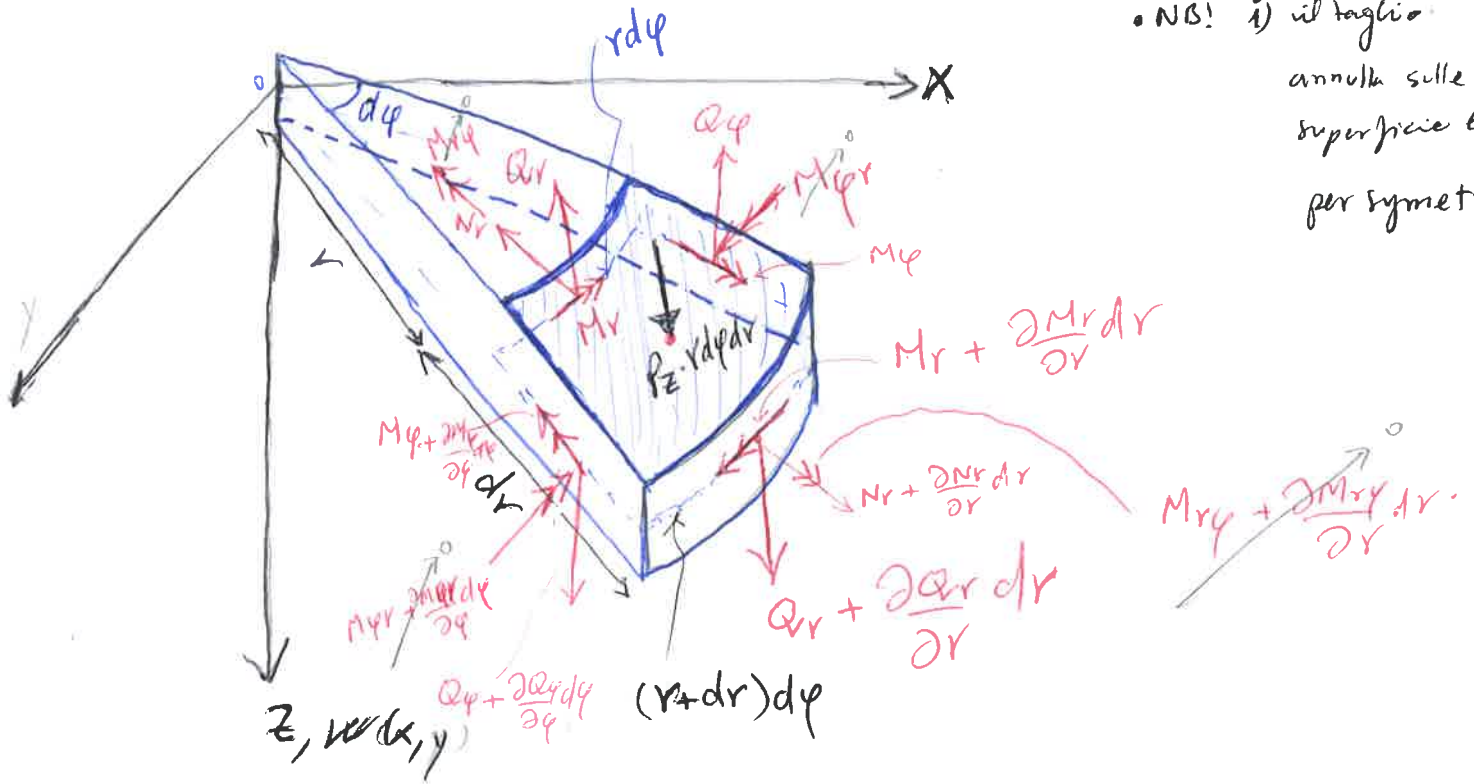 • NB! i) il taglio
annulla sulle
superficie
per symet
rdφ
0
X
dφ
0
Mrφ
Qr
Nr
Qφ
0
Mφr
Mφ
r
Mr
Pz·rdφdr
Mr + ∂Mr/∂r dr
y
Mφ + ∂Mφ/∂φ dφ
dr
Nr + ∂Nr/∂r dr
0
Mrφ + ∂Mrφ/∂r dr.
0
Mφr + ∂Mφr/∂φ dφ
Qr + ∂Qr/∂r dr
Qφ + ∂Qφ/∂φ dφ
(r+dr)dφ
Z, w(x,y)